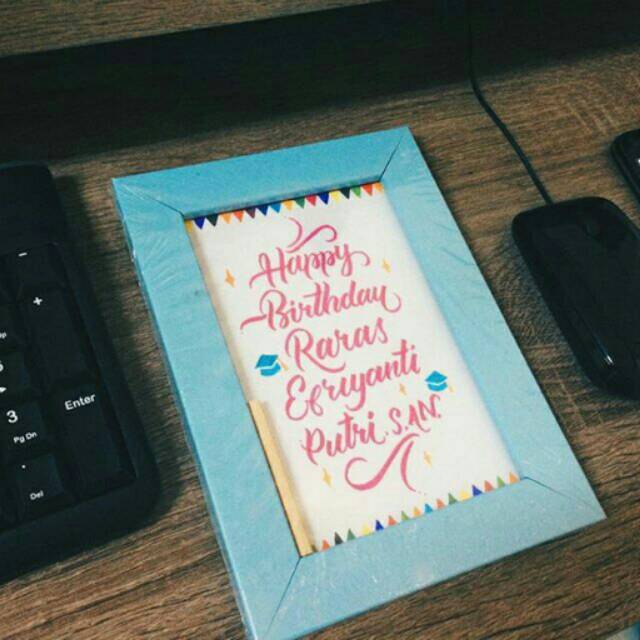 Happy
Birthday
Raras
Efriyanti
Putri. S.AN.
+
Enter
3
Pg Dn
.
Del